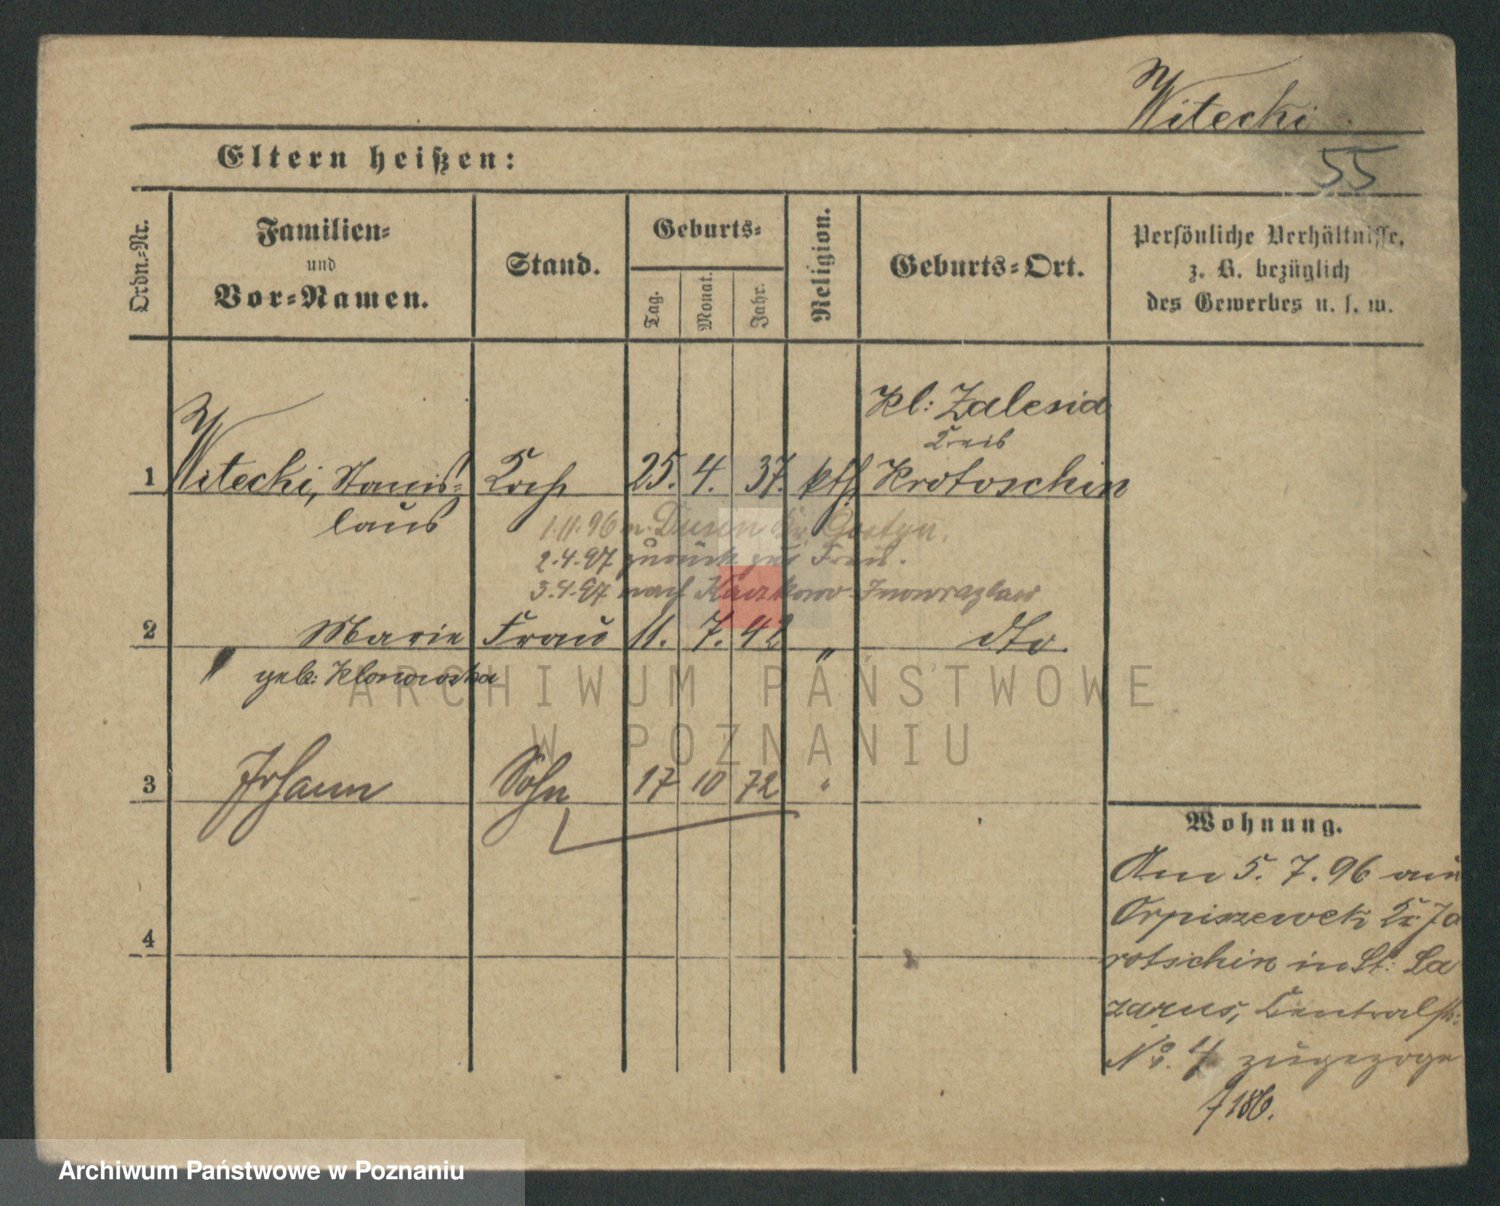 Witecki.
55
Eltern heißen:
Ordn.-Nr.
Familien-
und
Vor-Namen.
Stand.
Geburts-
Tag.
Monat.
Jahr.
Religion.
Geburts-Ort.
Persönliche Verhältnisse,
z. B. bezüglich
des Gewerbes u. s. w.
Kl: Zalesia
Kreis
1 Witecki, Stanis- Koch 25. 4. 37. kth Krotoschin
laus
1.11.96 n. Dusen Kr. Gostyn.
2.4.97 zurück zur Frau.
3.4.97 nach Kaczkowo-Inowrazlaw
2 " Marie Frau 11. 7. 42 " dto.
geb: Klonowska
ARCHIWUM PAŃSTWOWE
W POZNANIU
3 Johann Sohn 17 10 72 "
Wohnung.
Am 5. 7. 96 aus
Orpiszewek Kr. Ja
4
rotschin in St: La
zarus, Centralstr:
No. 4 zugezoge
186.
Archiwum Państwowe w Poznaniu